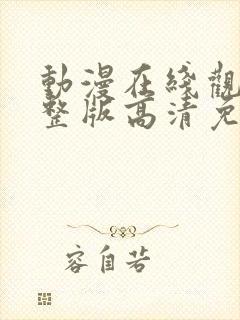 動漫在綫觀
整版高清免
容自若